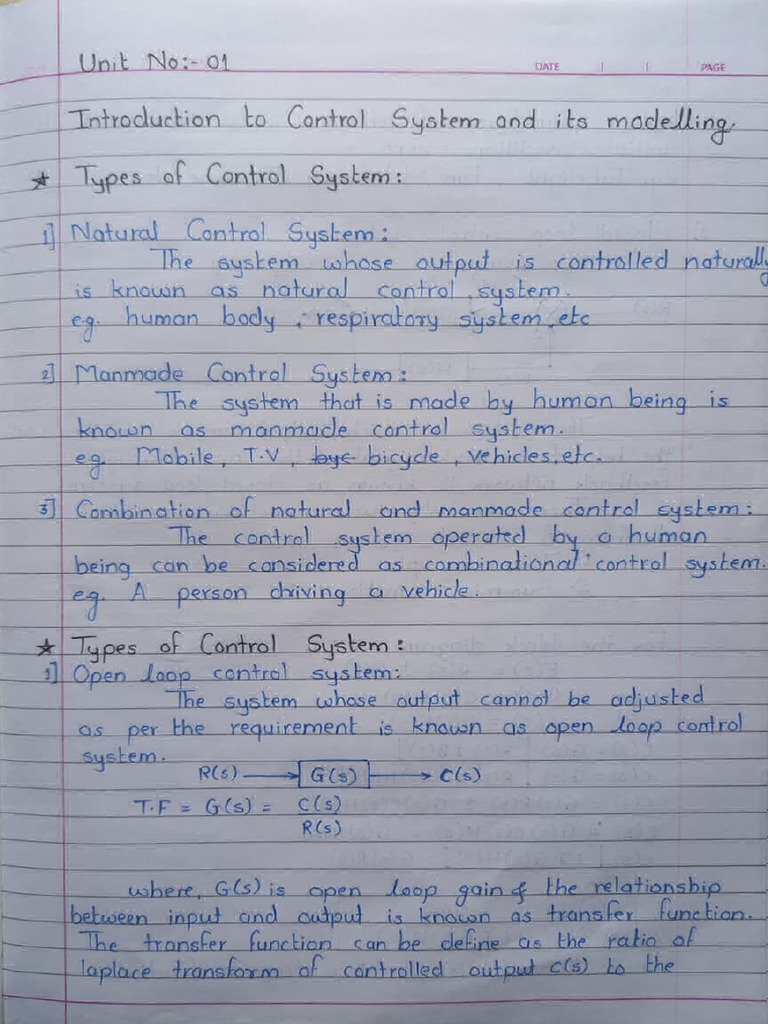 Unit No:- 01
DATE | | PAGE
Introduction to Control System and its modelling.
★ Types of Control System:
1] Natural Control System:
The system whose output is controlled naturally
is known as natural control system.
e.g. human body, respiratory system, etc
2] Manmade Control System:
The system that is made by human being is
known as manmade control system.
e.g. Mobile, T.V, bye bicycle, vehicles, etc.
3] Combination of natural and manmade control system:
The control system operated by a human
being can be considered as combinational control system.
e.g. A person driving a vehicle.
★ Types of Control System:
1] Open loop control system:
The system whose output cannot be adjusted
as per the requirement is known as open loop control
system.
R(s) → G(s) → C(s)
T.F = G(s) = C(s)
R(s)
where, G(s) is open loop gain & the relationship
between input and output is known as transfer function.
The transfer function can be define as the ratio of
laplace transform of controlled output C(s) to the